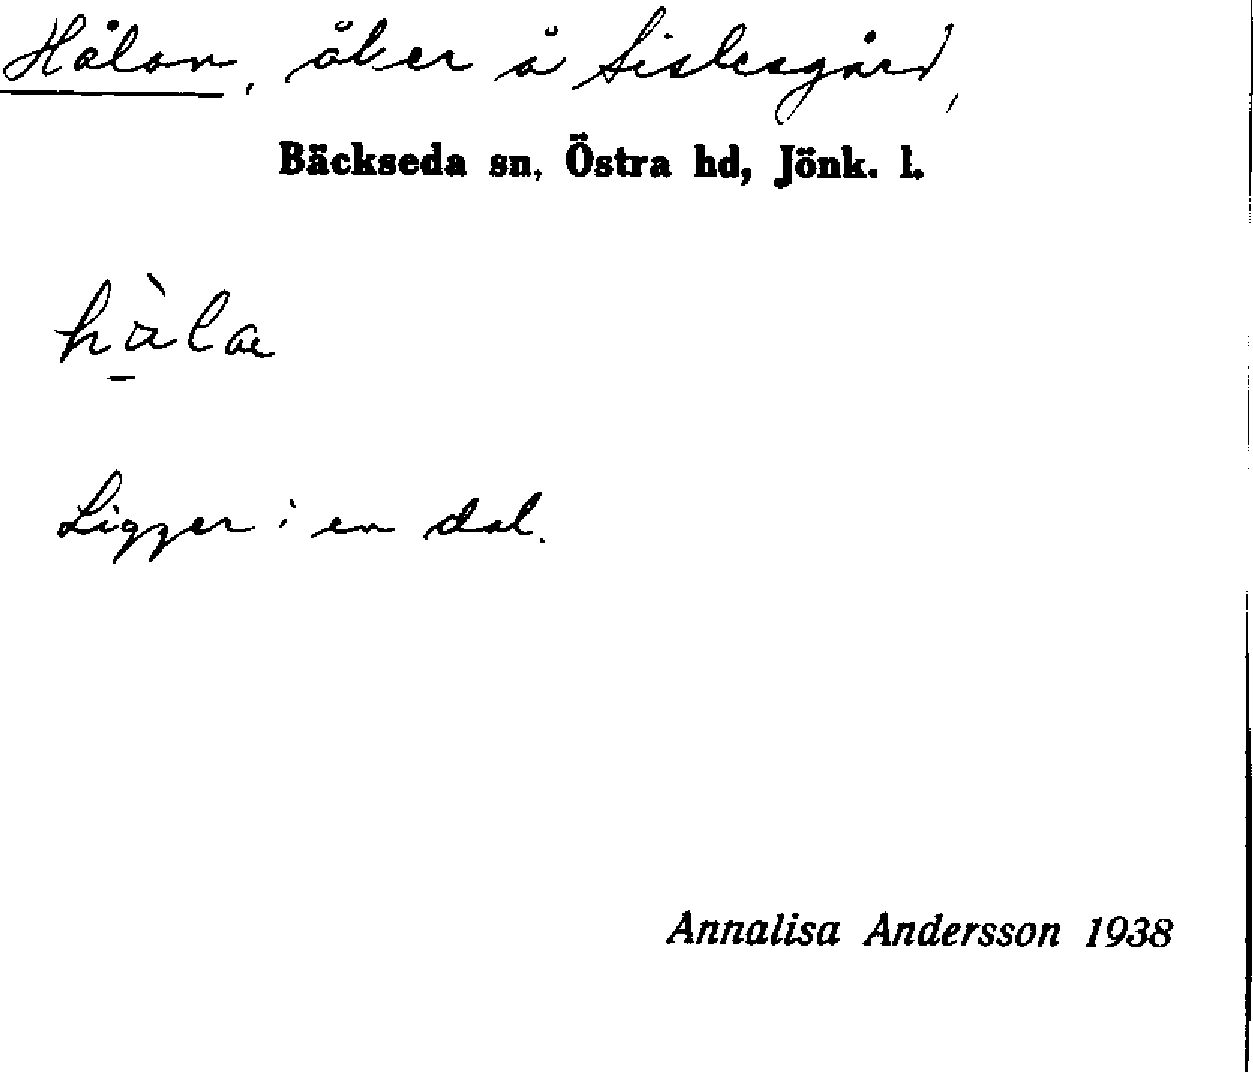 Hålan, åker å Sislesgård,
Bäckseda sn, Östra hd, Jönk. l.
hàla
Ligger i en dal.
Annalisa Andersson 1938